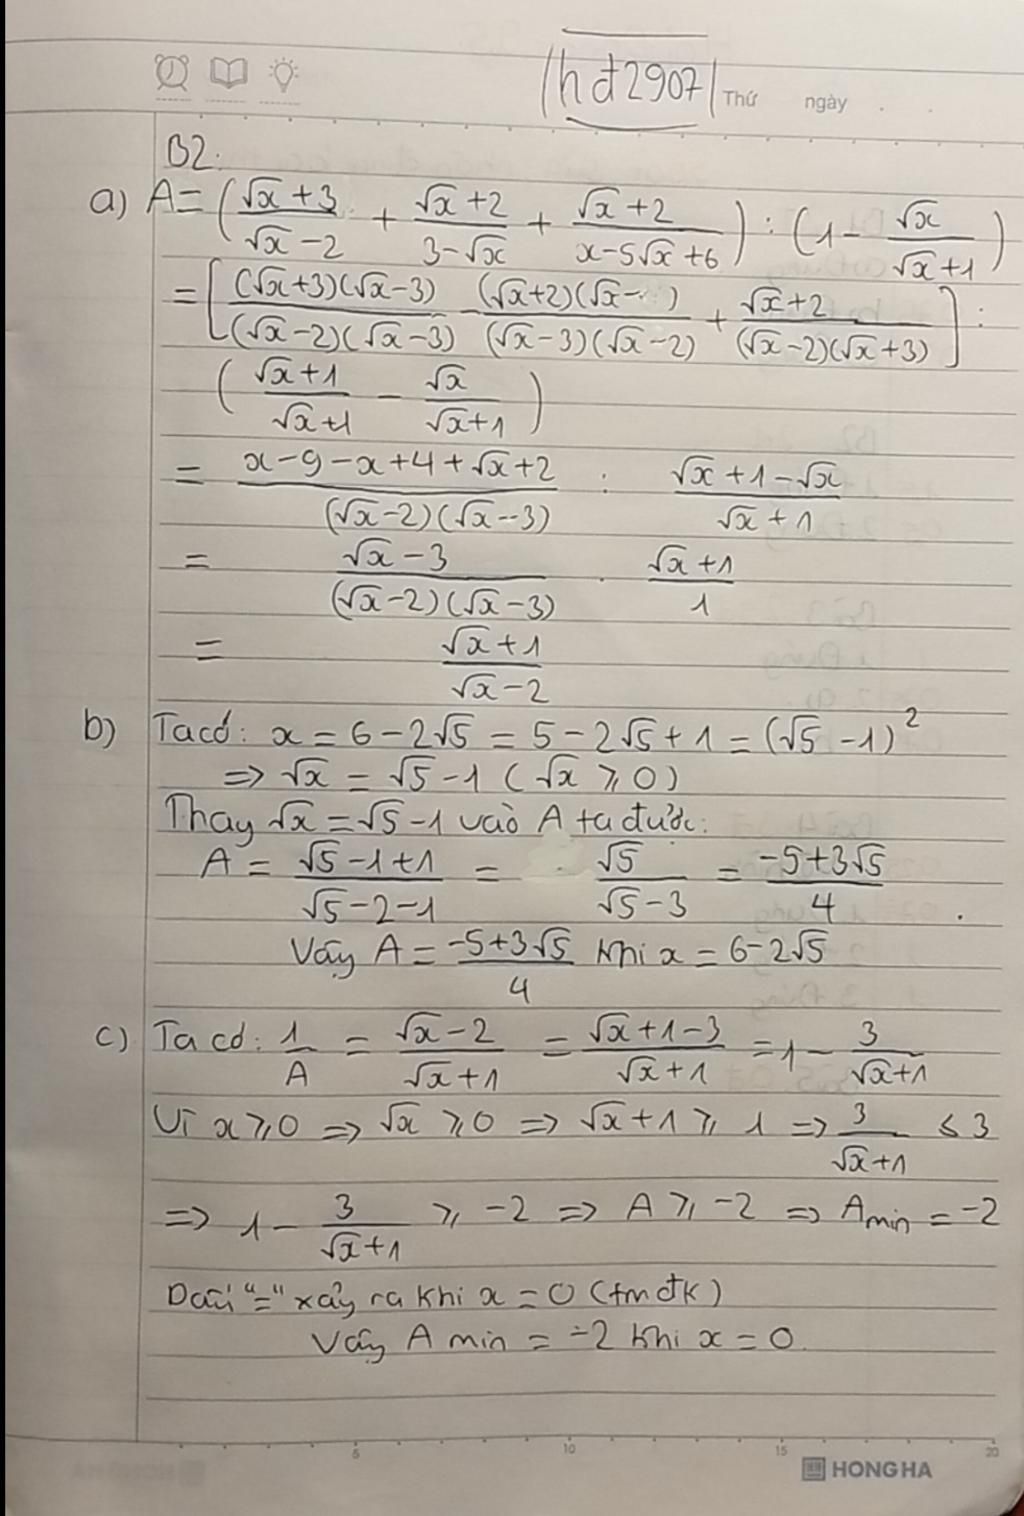 hđ2907
Thứ ngày . .
B2:
a) A = (\frac{√x + 3}{√x - 2} + \frac{√x + 2}{3 - √x} + \frac{√x + 2}{x - 5√x + 6}) : (1 - \frac{√x}{√x + 1})
= [\frac{(√x+3)(√x-3)}{(√x-2)(√x-3)} - \frac{(√x+2)(√x- )}{(√x-3)(√x-2)} + \frac{√x+2}{(√x-2)(√x+3)}] :
(\frac{√x+1}{√x+1} - \frac{√x}{√x+1})
= \frac{x-9-x+4+√x+2}{(√x-2)(√x-3)} : \frac{√x+1-√x}{√x+1}
= \frac{√x-3}{(√x-2)(√x-3)} . \frac{√x+1}{1}
= \frac{√x+1}{√x-2}
b) Ta có: x = 6 - 2√5 = 5 - 2√5 + 1 = (√5 - 1)²
=> √x = √5 - 1 (√x ⩾ 0)
Thay √x = √5 - 1 vào A ta được:
A = \frac{√5-1+1}{√5-2-1} = \frac{√5}{√5-3} = \frac{-5+3√5}{4} .
Vậy A = \frac{-5+3√5}{4} khi x = 6-2√5
c) Ta có: \frac{1}{A} = \frac{√x-2}{√x+1} = \frac{√x+1-3}{√x+1} = 1 - \frac{3}{√x+1}
Vì x ⩾ 0 => √x ⩾ 0 => √x + 1 ⩾ 1 => \frac{3}{√x+1} ⩽ 3
=> 1 - \frac{3}{√x+1} ⩾ -2 => A ⩾ -2 => A min = -2
Dấu "=" xảy ra khi x = 0 (tmđk)
Vậy A min = -2 khi x = 0.
5 10 15 20
HONG HA